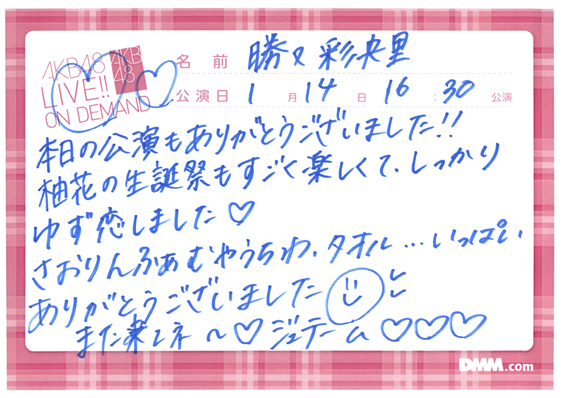 AKB48
LIVE!!
ON DEMAND
AKB
48
名前 勝又 彩央里
公演日 1月14日 16.30公演
本日の公演もありがとうございました!!
柚花の生誕祭もすごく楽しくて、しっかり
ゆず恋しました♡
さおりんふぁむやうちわ、タオル…いっぱい
ありがとうございました
また来てネ〜♡ジュテーム♡♡♡
DMM.com